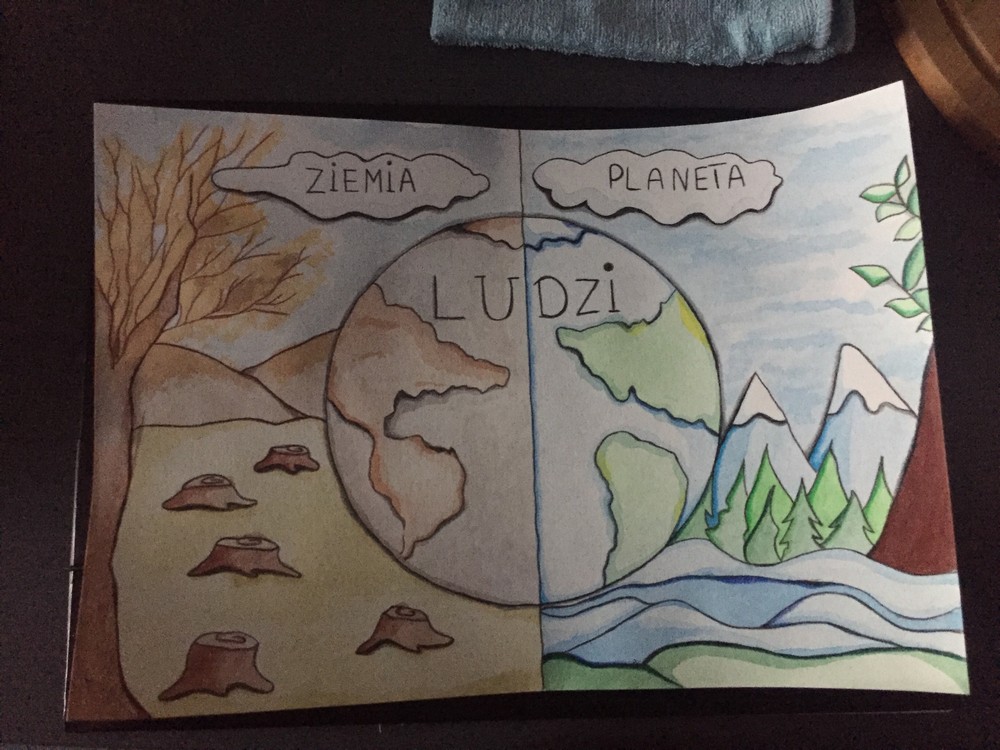 ZiEMiA
PLANETA
LUDZi